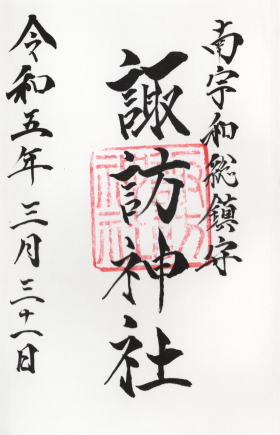 南宇和総鎮守
諏訪神社
令和五年三月三十一日